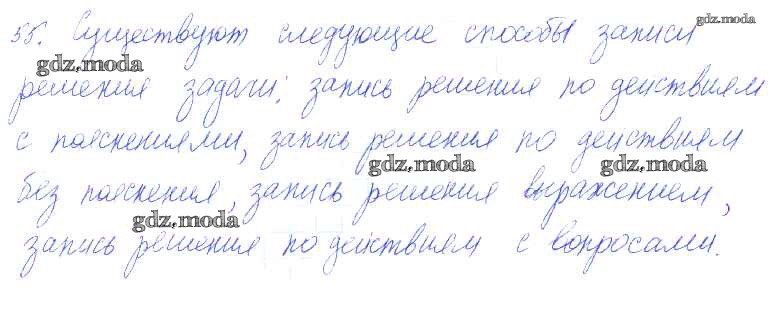 55. Существуют следующие способы записи
gdz.moda
gdz.moda
решения задачи: запись решения по действиям
с пояснениями, запись решения по действиям
gdz.moda
gdz.moda
без пояснения, запись решения выражением,
gdz.moda
запись решения по действиям с вопросами.